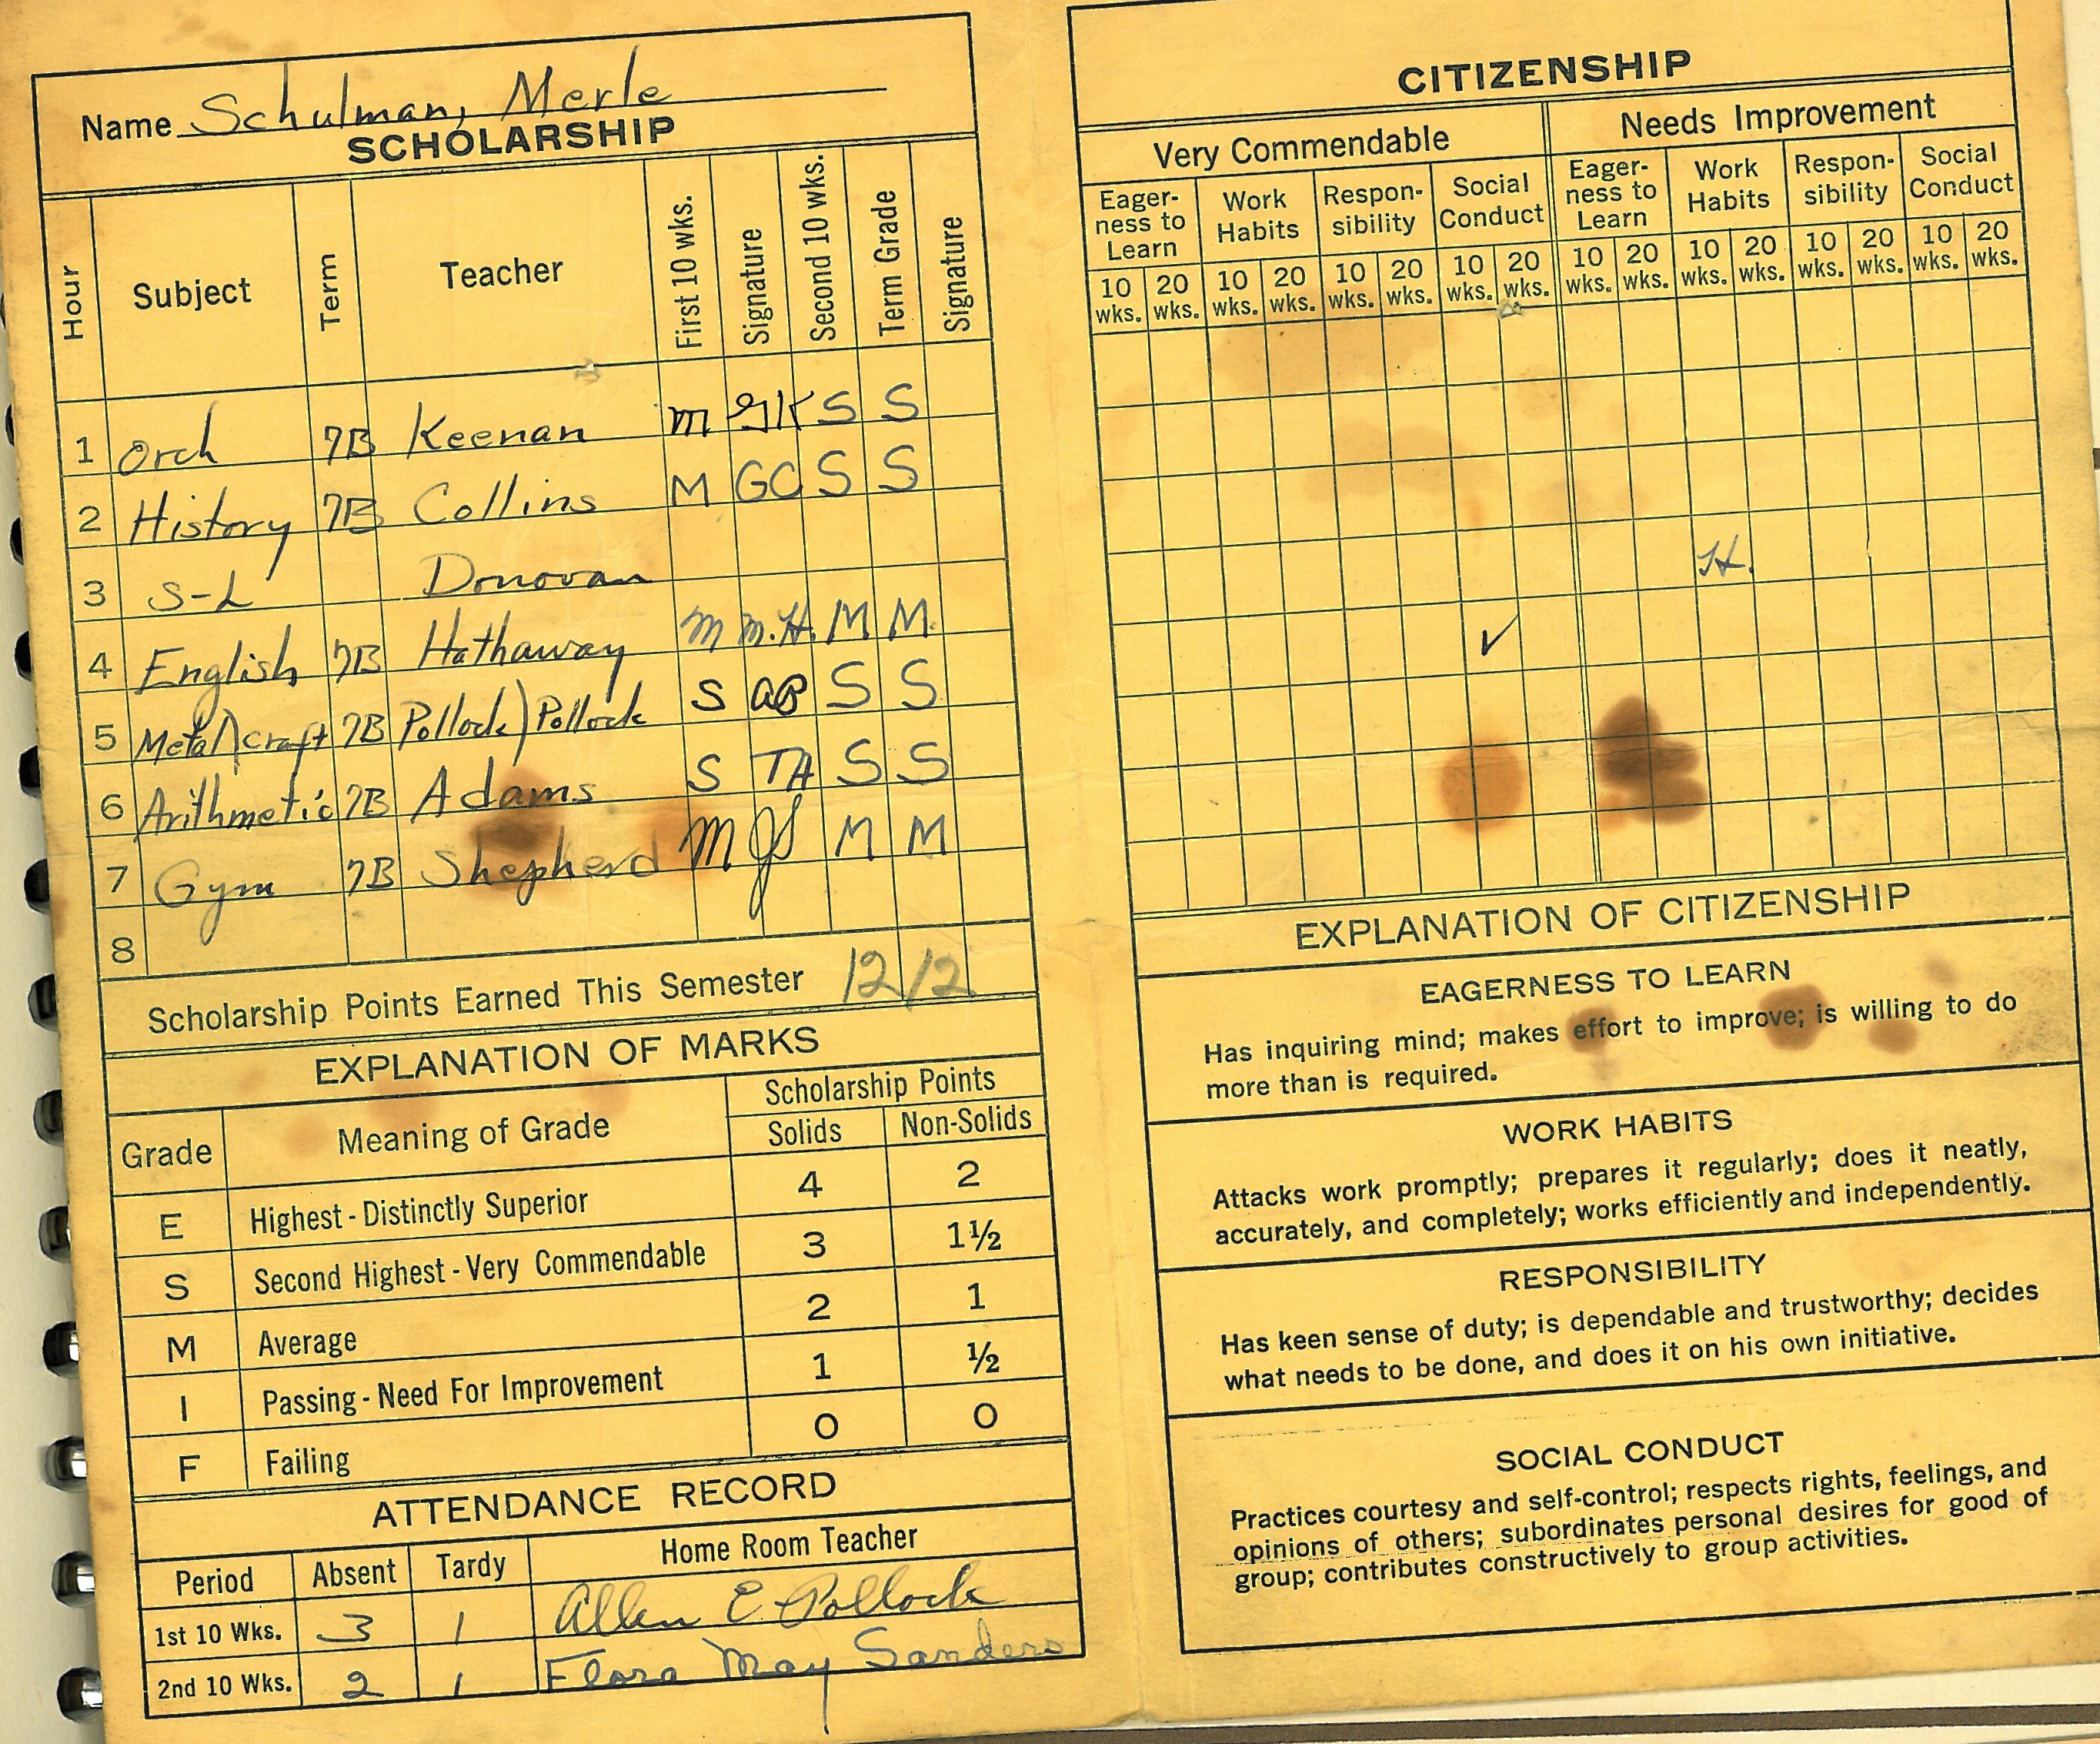 Name Schulman, Merle
SCHOLARSHIP
Hour Subject Term Teacher First 10 wks. Signature Second 10 wks. Term Grade Signature
1 Orch 7B Keenan m GK S S
2 History 7B Collins M GC S S
3 S-L Donovan
4 English 7B Hathaway M M.H. M M.
5 Metal/craft 7B Pollock) Pollock S aP S S
6 Arithmetic 7B Adams S TA S S
7 Gym 7B Shepherd M JS M M
8
Scholarship Points Earned This Semester 12/12
EXPLANATION OF MARKS
Grade Meaning of Grade Scholarship Points
Solids Non-Solids
E Highest - Distinctly Superior 4 2
S Second Highest - Very Commendable 3 1½
M Average 2 1
I Passing - Need For Improvement 1 ½
F Failing 0 0
ATTENDANCE RECORD
Period Absent Tardy Home Room Teacher
1st 10 Wks. 3 1 Allen E Pollock
2nd 10 Wks. 2 1 Flora May Sanders
CITIZENSHIP
Very Commendable Needs Improvement
Eager- Work Respon- Social Eager- Work Respon- Social
ness to Habits sibility Conduct ness to Habits sibility Conduct
Learn Learn
10 20 10 20 10 20 10 20 10 20 10 20 10 20 10 20
wks. wks. wks. wks. wks. wks. wks. wks. wks. wks. wks. wks. wks. wks. wks. wks.
H.
✓
EXPLANATION OF CITIZENSHIP
EAGERNESS TO LEARN
Has inquiring mind; makes effort to improve; is willing to do
more than is required.
WORK HABITS
Attacks work promptly; prepares it regularly; does it neatly,
accurately, and completely; works efficiently and independently.
RESPONSIBILITY
Has keen sense of duty; is dependable and trustworthy; decides
what needs to be done, and does it on his own initiative.
SOCIAL CONDUCT
Practices courtesy and self-control; respects rights, feelings, and
opinions of others; subordinates personal desires for good of
group; contributes constructively to group activities.